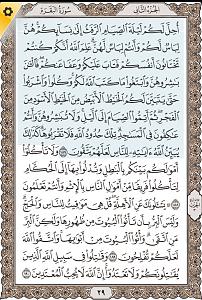 الجزء الثاني
سورة البقرة
أحل لكم ليلة الصيام الرفث إلى نسائكم هن
لباس لكم وأنتم لباس لهن علم الله أنكم كنتم
تختانون أنفسكم فتاب عليكم وعفا عنكم فالـٔن
بشروهن وابتغوا ما كتب الله لكم وكلوا واشربوا
حتى يتبين لكم الخيط الأبيض من الخيط الأسود من
الفجر ثم أتموا الصيام إلى اليل ولا تبشروهن وأنتم
عكفون في المسجد تلك حدود الله فلا تقربوها كذلك
يبين الله ءايته للناس لعلهم يتقون ١٨٧ ولا تأكلوا
أمولكم بينكم بالبطل وتدلوا بها إلى الحكام
لتأكلوا فريقا من أمول الناس بالإثم وأنتم تعلمون
١٨٨ يسـٔلونك عن الأهلة قل هي موقيت للناس والحج
وليس البر بأن تأتوا البيوت من ظهورها ولكن البر
من اتقى وأتوا البيوت من أبوبها واتقوا الله
لعلكم تفلحون ١٨٩ وقتلوا في سبيل الله الذين
يقتلونكم ولا تعتدوا إن الله لا يحب المعتدين ١٩٠
٢٩